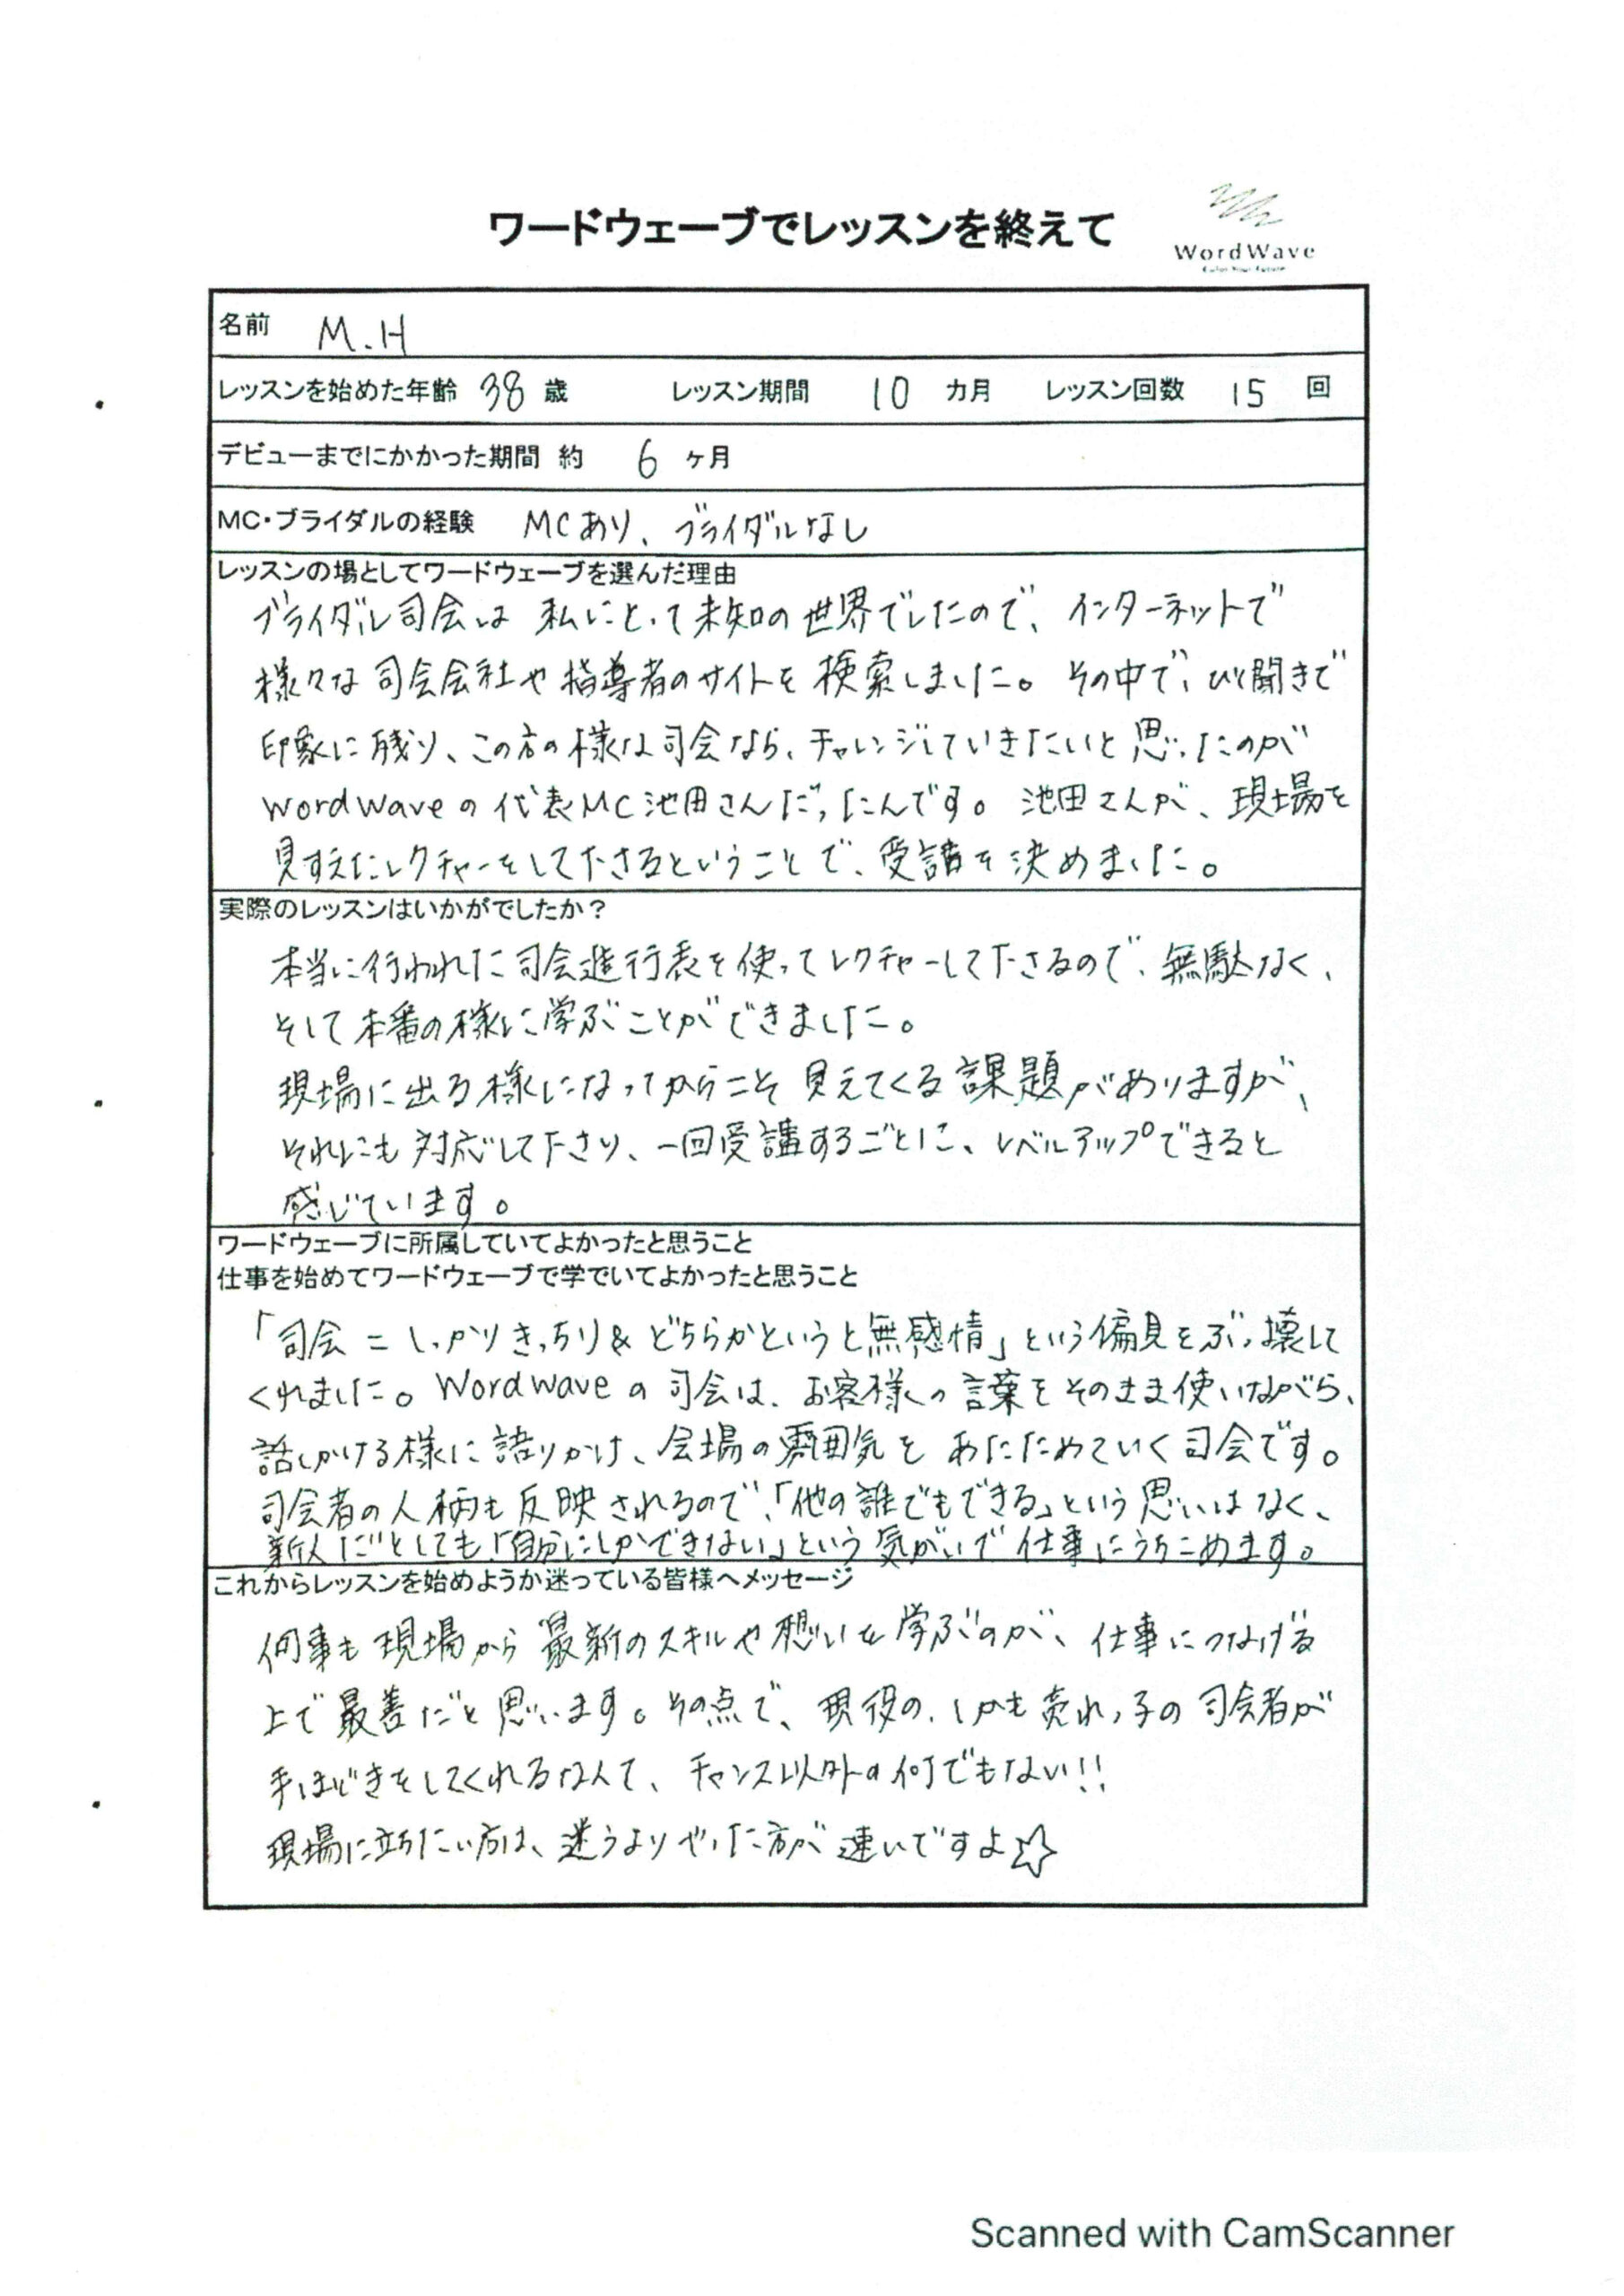 ワードウェーブでレッスンを終えて
WordWave
Color Your Future
名前 M.H
レッスンを始めた年齢 38 歳 レッスン期間 10 カ月 レッスン回数 15 回
デビューまでにかかった期間 約 6 ヶ月
MC・ブライダルの経験 MCあり、ブライダルなし
レッスンの場としてワードウェーブを選んだ理由
ブライダル司会は 私にとって未知の世界でしたので、インターネットで
様々な司会会社や指導者のサイトを検索しました。その中で、ひと聞きで
印象に残り、この方の様な司会なら、チャレンジしていきたいと思ったのが
WordWaveの代表MC池田さんだったんです。池田さんが、現場を
見すえたレクチャーをして下さるということで、受講を決めました。
実際のレッスンはいかがでしたか？
本当に行われた司会進行表を使ってレクチャーして下さるので、無駄なく、
そして本番の様に学ぶことができました。
現場に出る様になってからこそ見えてくる課題がありますが、
それにも対応して下さり、一回受講するごとに、レベルアップできると
感じています。
ワードウェーブに所属していてよかったと思うこと
仕事を始めてワードウェーブで学でいてよかったと思うこと
「司会＝しっかりきっちり＆どちらかというと無感情」という偏見をぶっ壊して
くれました。WordWaveの司会は、お客様の言葉をそのまま使いながら、
話しかける様に語りかけ、会場の雰囲気をあたためていく司会です。
司会者の人柄も反映されるので、「他の誰でもできる」という思いはなく、
新人だとしても、「自分にしかできない」という気がいで仕事にうちこめます。
これからレッスンを始めようか迷っている皆様へメッセージ
何事も現場から最新のスキルや想いを学ぶのが、仕事につなげる
上で最善だと思います。その点で、現役の、しかも売れっ子の司会者が
手ほどきをしてくれるなんて、チャンス以外の何でもない!!
現場に立ちたい方は、迷うよりやった方が速いですよ☆
Scanned with CamScanner